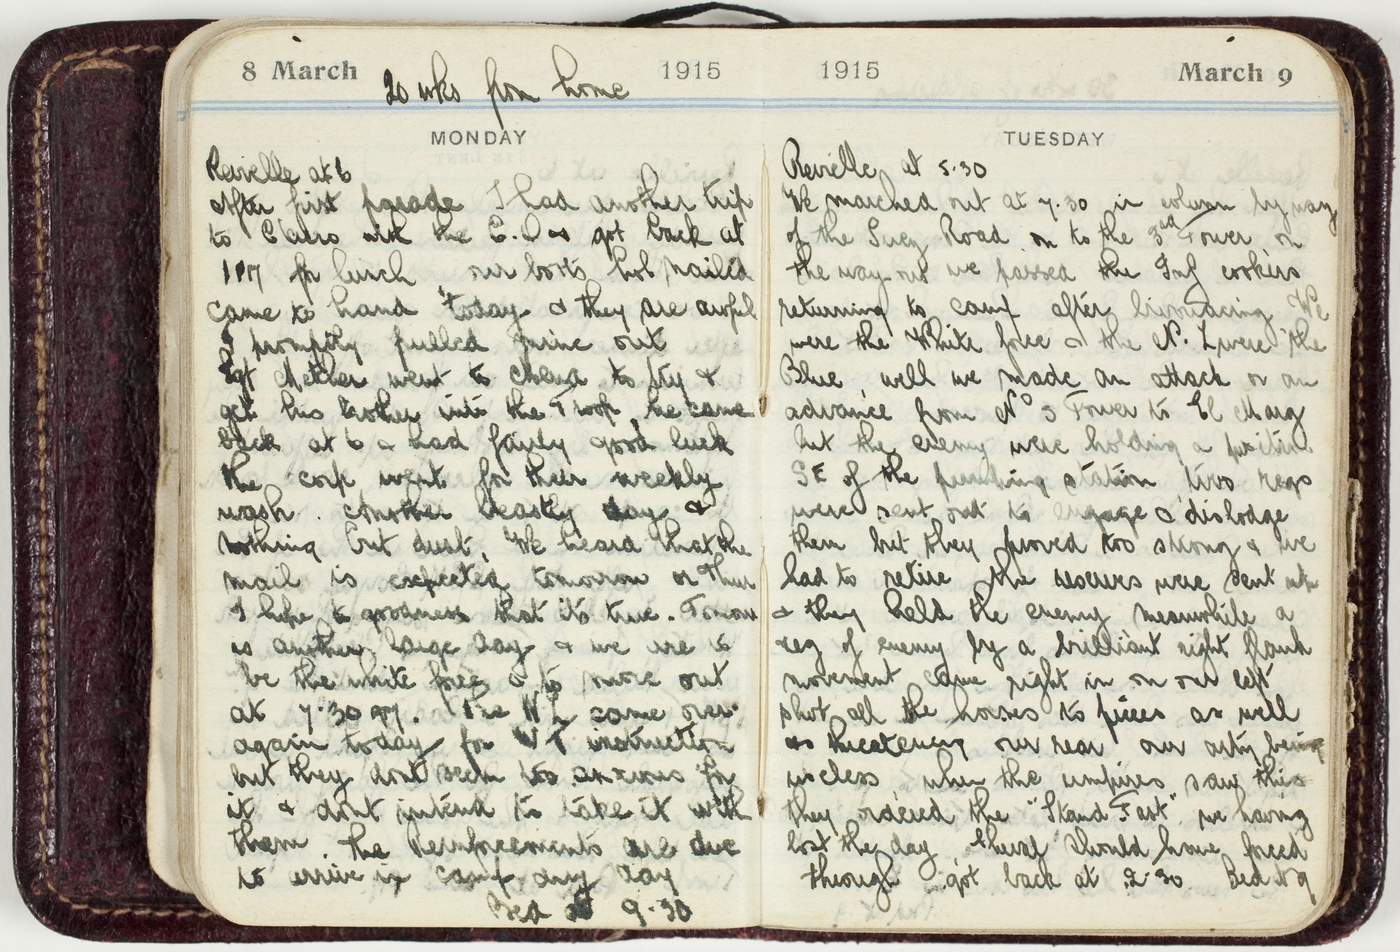 8 March 1915
20 wks from home
MONDAY
Reveille at 6
After first parade I had another trip
to Cairo with the C.O & got back at
for lunch our boots hob nailed
came to hand today & they are awful
I promptly pulled mine out
Sgt went to to try &
get his brother into the Troop, he came
back at 6 & had fairly good luck
the corp went for their weekly
wash. Another beastly day &
nothing but dust, We heard that the
mail is expected tomorrow or Thur
I hope to goodness that it's true. Tomorr
is another large day & we are to
be the white force & to move out
at 7.30 am. The N Z came over
again today for instruction
but they dont seem too anxious for
it & dont intend to take it with
them. The Reinforcements are due
to arrive in camp any day
Bed at 9.30
1915 March 9
TUESDAY
Reveille at 5.30
We marched out at 7.30 in column by way
of the Suez Road on to the 3rd Tower on
the way out we passed the Inf cookers
returning to camp after bivouacing We
were the White force & the N. Z were the
Blue well we made an attack or an
advance from No 3 Tower to El Marg
but the enemy were holding a position
SE of the pumping station two regs
were sent out to engage & dislodge
them but they proved too strong & we
had to retire the reserves were sent
& they held the enemy meanwhile a
reg of enemy by a brilliant right flank
movement came right in on our left
shot all the horses to pieces as well
as threatening our rear our arty being
useless when the umpires saw this
they ordered the "Stand Fast" we having
lost the day should have forced
through got back at 2.30 Bed to 9